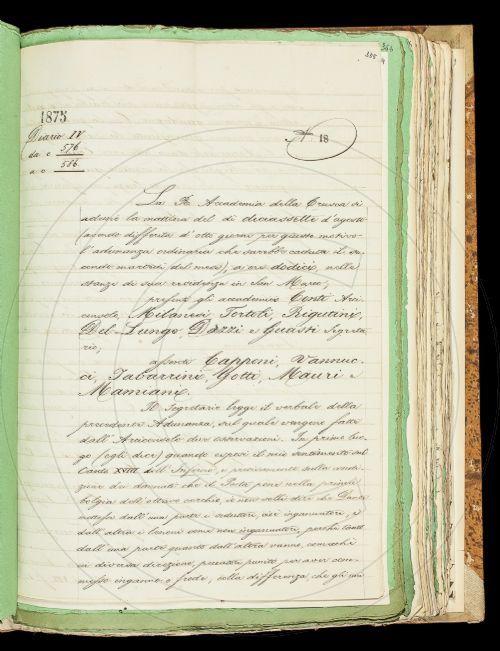 366
365
1875
N. 18
Diario IV
da c 576
a c 586
La R. Accademia della Crusca si
adunò la mattina del dì diciassette d'agosto
(avendo differita d'otto giorni per giusto motivo
l'adunanza ordinaria che sarebbe caduta il se-
condo martedì del mese), a ore dodici, nelle
stanze di sua residenza in San Marco;
presenti gli accademici Conti Arci-
consolo, Milanesi, Tortoli, Rigutini,
Del-Lungo, Dazzi e Guasti Segreta-
rio;
assenti Capponi, Vannuc-
ci, Tabarrini, Gotti, Mauri e
Mamiani.
Il Segretario legge il verbale della
precedente Adunanza, sul quale vengono fatte
dall'Arciconsolo due osservazioni. In primo luo-
go (egli dice) quando esposi il mio sentimento sul
Canto XVIII dell'Inferno, e precisamente sulla condi-
zione dei dannati che il Poeta pone nella prima
bolgia dell'ottavo cerchio, io non volli dire che Dante
mettesse dall'una parte i seduttori, cioè ingannatori, e
dall'altra i lenoni come non ingannatori, perchè tanto
dall'una parte quanto dall'altra vanno, comecchè
in diversa direzione, peccatori puniti per aver com-
messo inganno e frode, colla differenza che gli uni